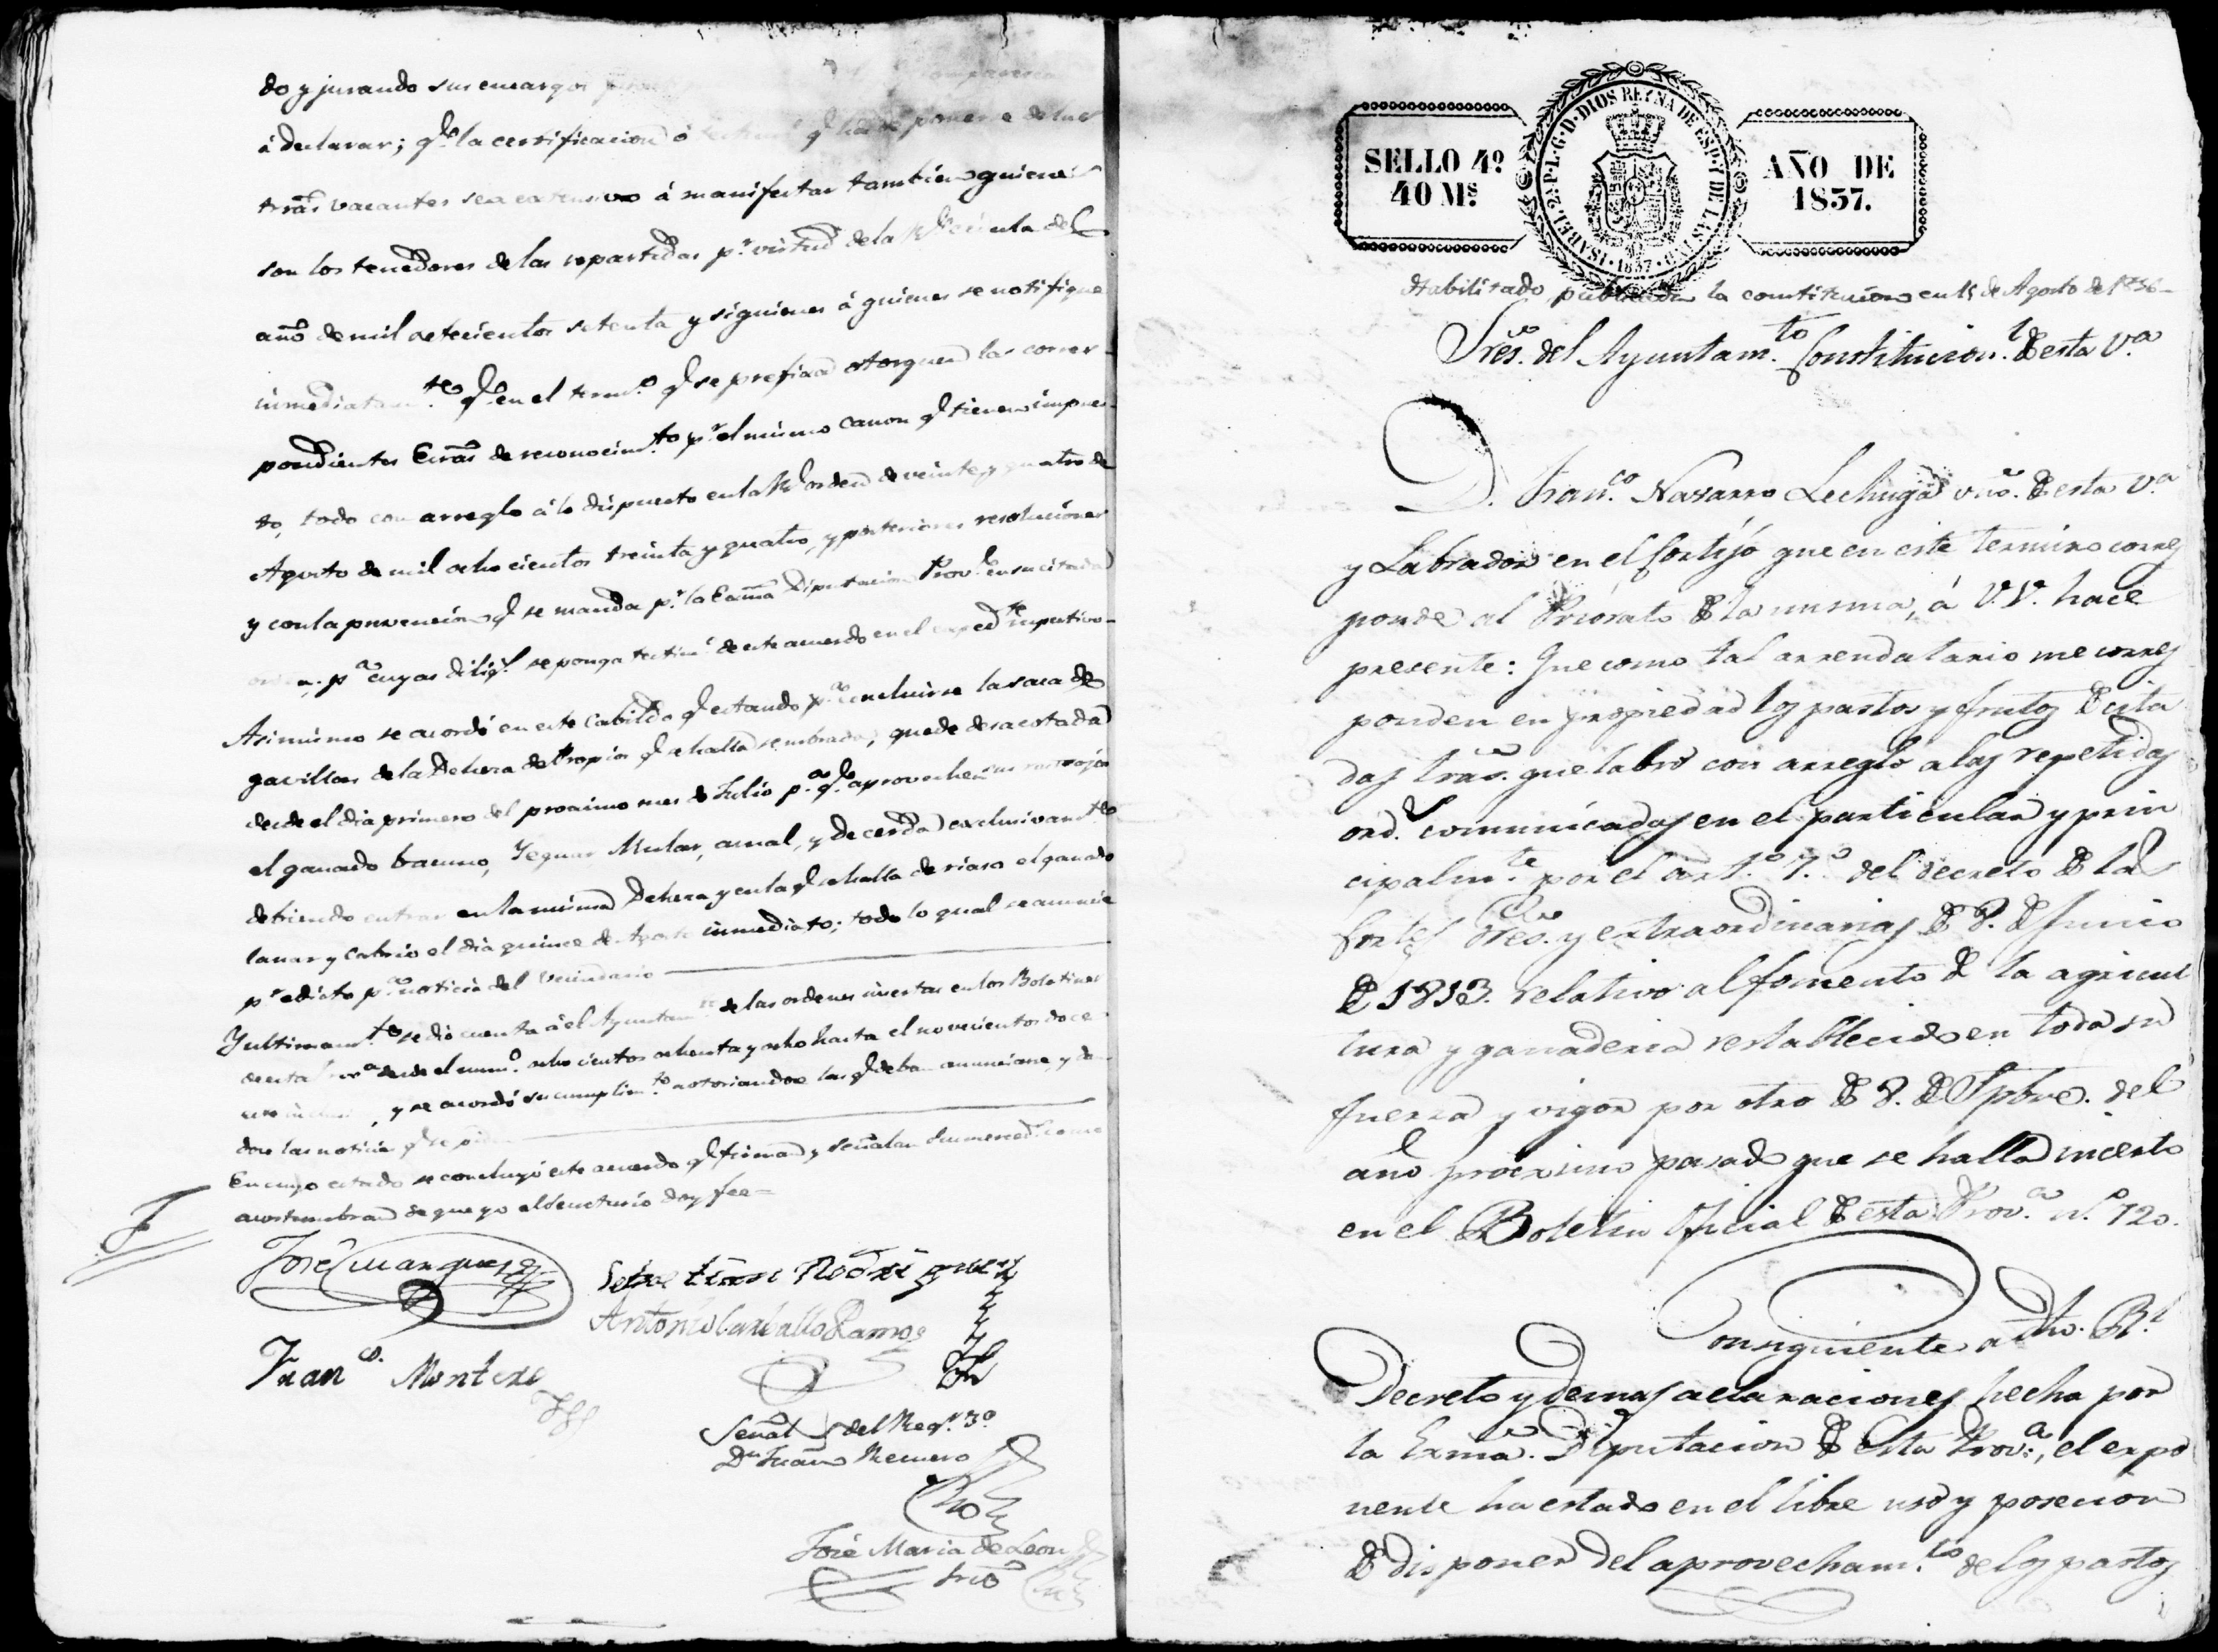 do y jurando sus encargos
á declarar; q.e la certificacion ó q.e ha de ponerse de las
trrâs vacantes sea extensiva á manifestar tambien quienes
son los tenedores de las repartidas p.r virtud de la Rl cédula del
año de mil setecientos setenta y siguienes á quienes se notifique
inmediatam.te q.e en el term.o q.e se prefixa otorguen las corres-
pondientes Escrâs de reconocim.to p.r el mismo canon q.e tienen impues-
to, todo con arreglo á lo dispuesto en la Rl orden de veinte y quatro de
Agosto de mil ochocientos treinta y quatro, y posteriores resoluciones
y con la prevencion q.e se manda p.r la Exmâ Diputacion Prov.l en su citada
orden, p.a cuyas dilig.s se ponga testim.o de este acuerdo en el exped.te respectivo-
Asimismo se acordó en este Cabildo q.e estando p.a concluirse la saca de
gavillas de la Dehesa de Propios q.e se halla sembrada, quede desacotada
desde el dia primero del proximo mes de Julio p.a q.e aprovechen sus rastrojos
el ganado bacuno, Yeguar Mular, asnal, y de cerda exclusivam.te
debiendo entrar en la misma Dehesa y en la q.e se halla de riaso el ganado
lanar y Cabrio el dia quince de Agosto inmediato; todo lo qual se anuncie
p.r edicto p.a noticia del vecindario
Y ultimam.te se dió cuenta á el Ayuntam.to de las ordenes insertas en los Boletines
de esta Prov.a desde el num.o ochocientos ochenta y ocho hasta el novecientos doce
inclusive, y se acordó su cumplim.to notoriandose las q.e deban anunciarse y dan-
dose las noticias q.e se piden
En cuyo estado se concluyó este acuerdo q.e firman y señalan sus mercedes como
acostumbran de que yo el Secretario doy fee=
José Marquez
Sebastian Rodriguez
Antonio Carballo Ramos
Fran.co Montero
Señal del Reg.r 3.o
D.n Juan Romero
José Maria de Leon
Srio
SELLO 4º
40 Ms.
ISABEL 2ª P. L. G. D. DIOS REYNA DE ESP. Y DE LAS IND.
1837
AÑO DE
1837.
Habilitado, publicada la constitucion en 15 de Agosto de 1836-
Sres. del Ayuntam.to Constitucion.l de esta V.a
D. Fran.co Navarro Lechuga vño. de esta V.a
y Labrador en el Cortijo que en este termino corres
ponde al Priorato de la misma, á V.V. hace
presente: Que como tal arrendatario me corres
ponden en propiedad los pastos y frutos de esta
das trrãs. que labro con arreglo a las repetidas
ord.s comunicadas en el particular y prin
cipalm.te por el art.o 7.o del decreto de las
Cortes Gres. y extraordinarias de 8. de Junio
de 1813. relativo al fomento de la agricul
tura y ganaderia restablecido en toda su
fuerza y vigor por otro de 8. de Spbre. del
año próximo pasado que se halla incerto
en el Boletin Oficial de esta Prov.a n.o 720.
Consiguiente a dho. Rl
Decreto y demas aclaraciones hecha por
la Exmã. Diputacion de esta Prov.a, el expo
nente ha estado en el libre uso y posecion
de disponer del aprovecham.to de los pastos